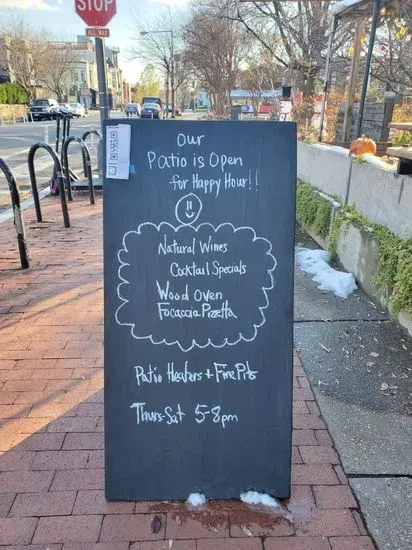 STOP
ALL WAY
Our
Patio is Open
for Happy Hour!!
Natural Wines
Cocktail Specials
Wood Oven
Focaccia Pizetta
Patio Heaters + Fire Pits
Thurs-Sat 5-8pm